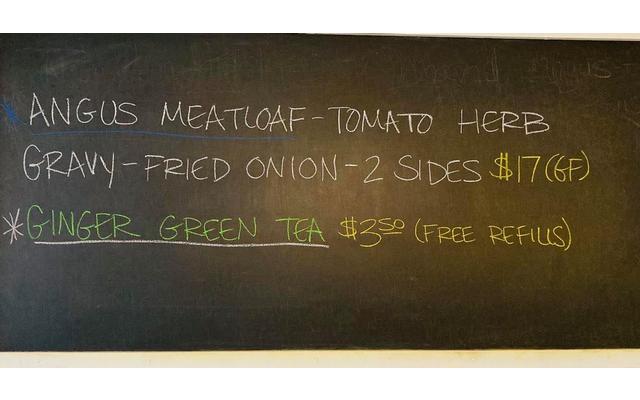 * ANGUS MEATLOAF-TOMATO HERB
GRAVY-FRIED ONION-2 SIDES $17 (GF)
* GINGER GREEN TEA $3.50 (FREE REFILLS)